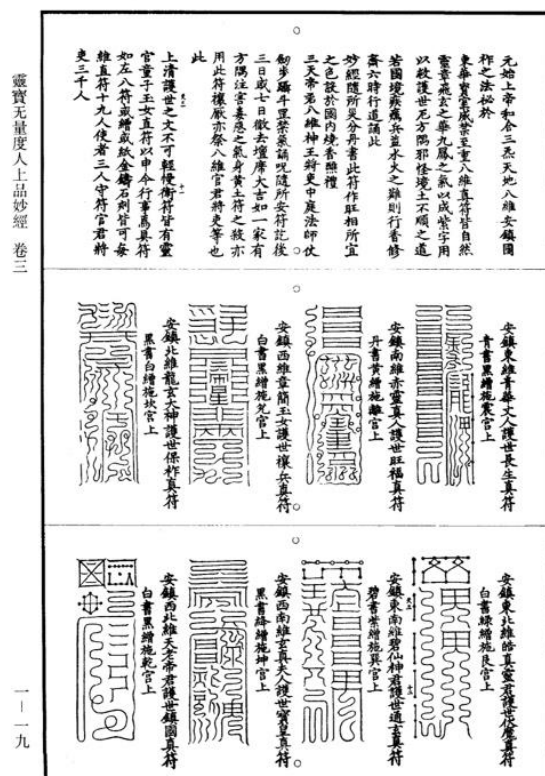 元始上帝和合三炁天地八維安鎮國
祚之法秘於
東華寶室威禁至重八維真符皆自然
靈章飛玄之華九鳳之氣以成紫字用
以救護世厄方隅邪怪境土不順之道
若國境疾癘兵盜水火之難則行香修
齋六時行道誦此
妙經隨所災分丹書此符作旺相所宜
之色設於國內燒香醮禮
三天帝第八維神王將吏中庭法師伏
劒步躡斗罡禁氣誦呪隨所安符訖後
三日或七日徹去壇席大吉如一家有
方隅住宮毒惡之氣身黃土符之殺亦
用此符禳厭亦祭八維官君將吏等也
此
上清護世之文不可輕慢衛符皆有靈
官童子玉女直符以申令行事焉真符
如左八符或繒或紙金鑄石刻皆可每
維直符十九人使者三人守符官君將
吏三千人
安鎮東維青華丈人護世長生真符
青書黑繒施震宮上
安鎮南維赤靈真人護世旺福真符
丹書黃繒施離宮上
安鎮西維韋簡玉女護世禳兵真符
白書黑繒施兌宮上
安鎮北維龍玄大神護世保祚真符
黑書白繒施坎宮上
安鎮東北維皓真靈君護世伏魔真符
白書綠繒施艮宮上
安鎮東南維碧仙神君護世通玄真符
碧書紫繒施巽宮上
安鎮西南維玄真夫人護世寶皇真符
黑書絳繒施坤宮上
安鎮西北維天老帝君護世鎮國真符
白書黑繒施乾宮上
靈寶无量度人上品妙經 卷三
一—一九